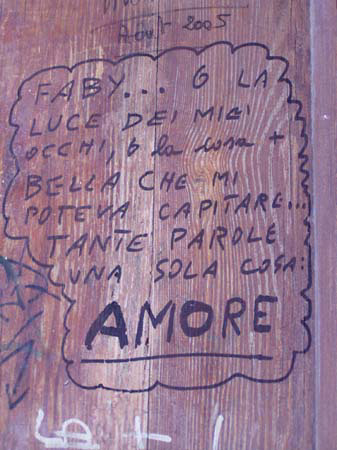 Août 2005
FABY... 6 LA
LUCE DEI MIEI
OCCHI, 6 la cosa +
BELLA CHE MI
POTEVA CAPITARE...
TANTE PAROLE
UNA SOLA COSA:
AMORE